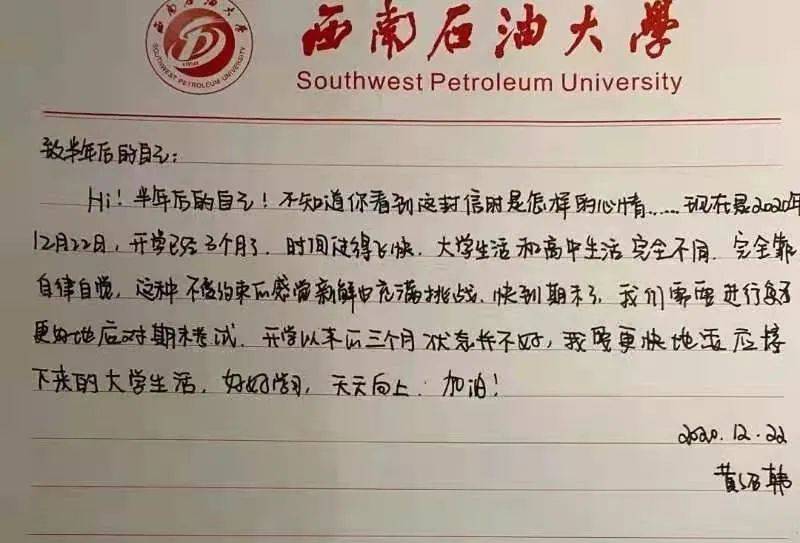 西南石油大学
SOUTHWEST PETROLEUM UNIVERSITY
西南石油大學
Southwest Petroleum University
致半年后的自己:
Hi! 半年后的自己! 不知道你看到这封信时是怎样的心情...... 现在是2020年
12月22日, 开学已经3个月了. 时间过得飞快. 大学生活和高中生活完全不同. 完全靠
自律自觉, 这种不受约束的感觉新鲜也充满挑战. 快到期末了, 我们需要进行复习
更好地应对期末考试. 开学以来的三个月状态并不好, 我要更快地适应接
下来的大学生活. 好好学习, 天天向上. 加油!
2020.12.22
黄 韩